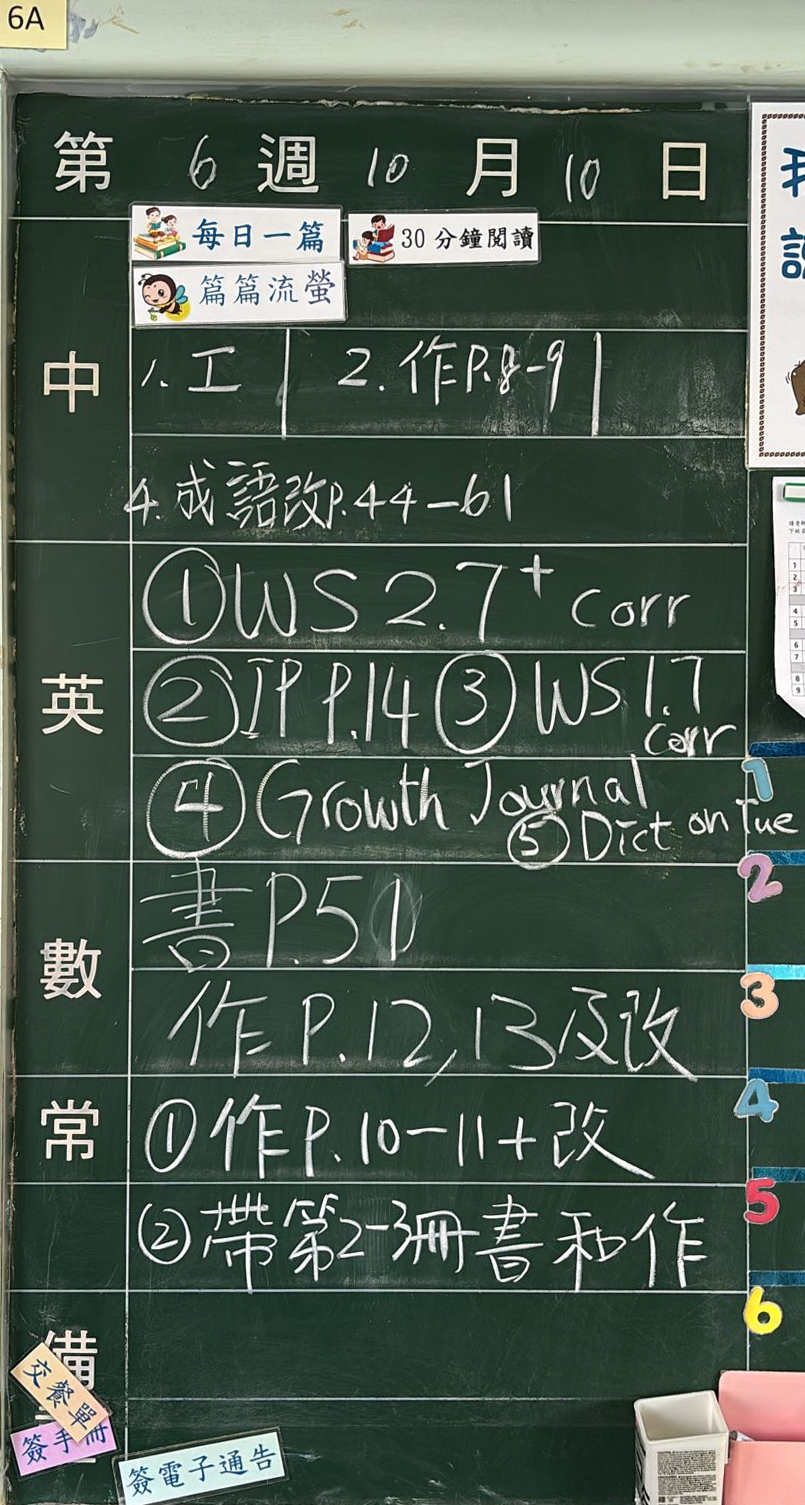 6A
第 6 週 10 月 10 日
每日一篇 30分鐘閱讀
篇篇流螢
中
1. 工 2. 作P.8-9
4. 成語改P.44-61
英
①WS 2.7+ corr
②IP P.14 ③WS 1.7 corr
④Growth Journal
⑤Dict on Tue
數
書P.51
作 P.12,13及改
常
①作P.10-11+改
②帶第2-3冊書和作
備
交餐單
簽手冊
簽電子通告
1
2
3
4
5
6